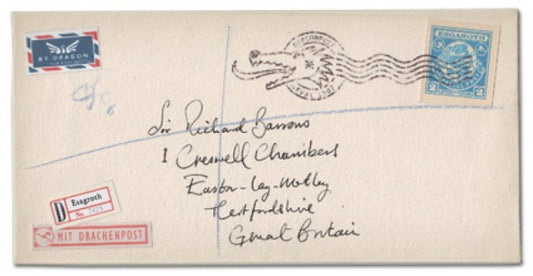 BY DRAGON
ESGAROTH
2
2
Sir Richard Barrons
1 Creswell Chambers
Easton-Leg-Motley
Hertfordshire
Great Britain
D
Esgaroth
No.
MIT DRACHENPOST